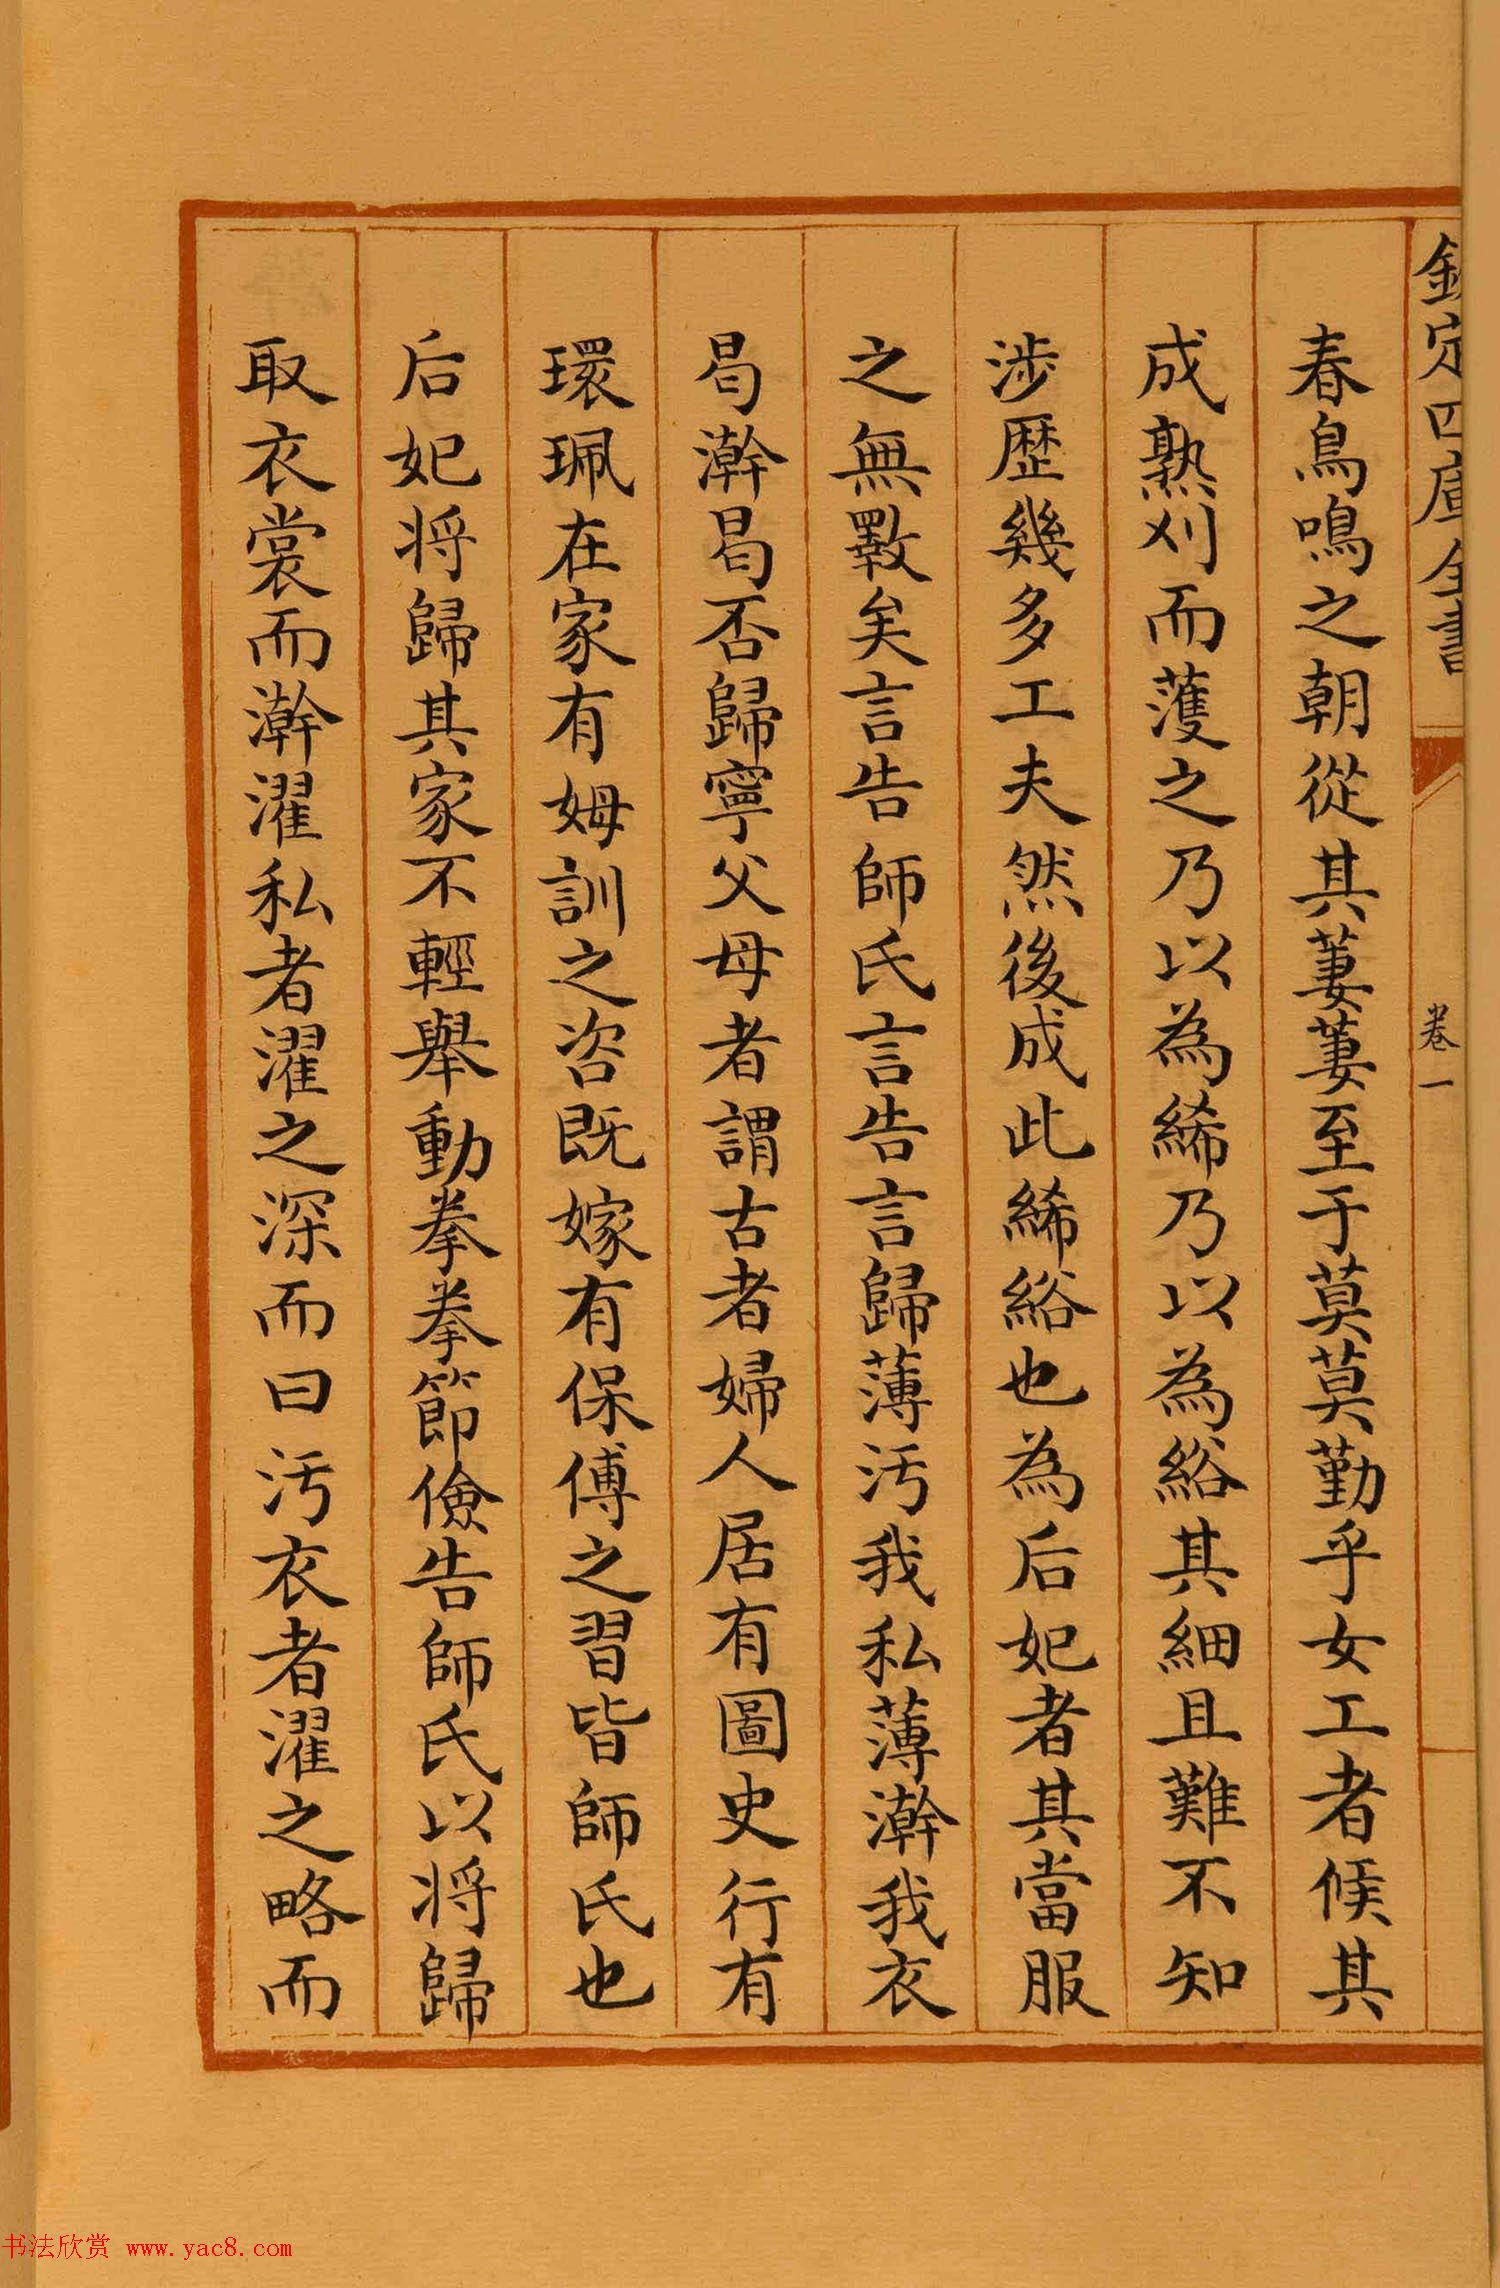 欽定四庫全書
卷一
春鳥鳴之朝從其萋萋至于莫莫勤乎女工者候其
成熟刈而蒦之乃以為絺乃以為綌其細且難不知
涉歴幾多工夫然後成此絺綌也為后妃者其當服
之無斁矣言告師氏言告言歸薄汚我私薄澣我衣
曷澣曷否歸寧父母者謂古者婦人居有圖史行有
環珮在家有姆訓之咨既嫁有保傅之習皆師氏也
后妃将歸其家不輕舉動拳拳節儉告師氏以将歸
取衣裳而澣濯私者濯之深而曰汚衣者濯之略而
书法欣赏 www.yac8.com